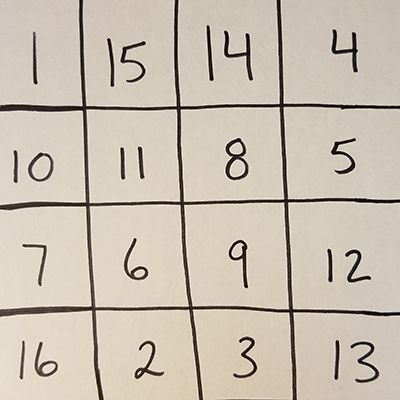 1 15 14 4
10 11 8 5
7 6 9 12
16 2 3 13